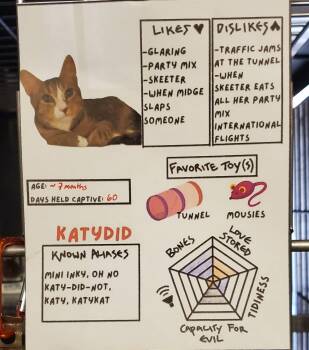 LIKES
-GLARING
-PARTY MIX
-SKEETER
-WHEN MIDGE
SLAPS
SOMEONE
DISLIKES
-TRAFFIC JAMS
AT THE TUNNEL
-WHEN
SKEETER EATS
ALL HER PARTY
MIX
INTERNATIONAL
FLIGHTS
AGE: ~ 7 months
DAYS HELD CAPTIVE: 60
FAVORITE TOY(S)
TUNNEL
MOUSIES
KATYDID
KNOWN ALIASES
MINI INKY, OH NO
KATY-DID-NOT,
KATY, KATYKAT
BONES
LOVE
STORED
TIDINESS
CAPACITY FOR
EVIL